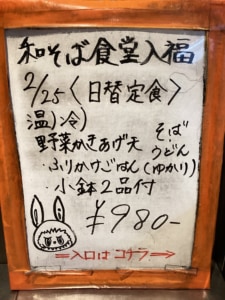 和そば食堂入福
2/25〈日替定食〉
温)冷)
野菜かきあげ天 そば うどん
・ふりかけごはん(ゆかり)
・小鉢2品付
¥980-
⇒入口はコチラ⇒